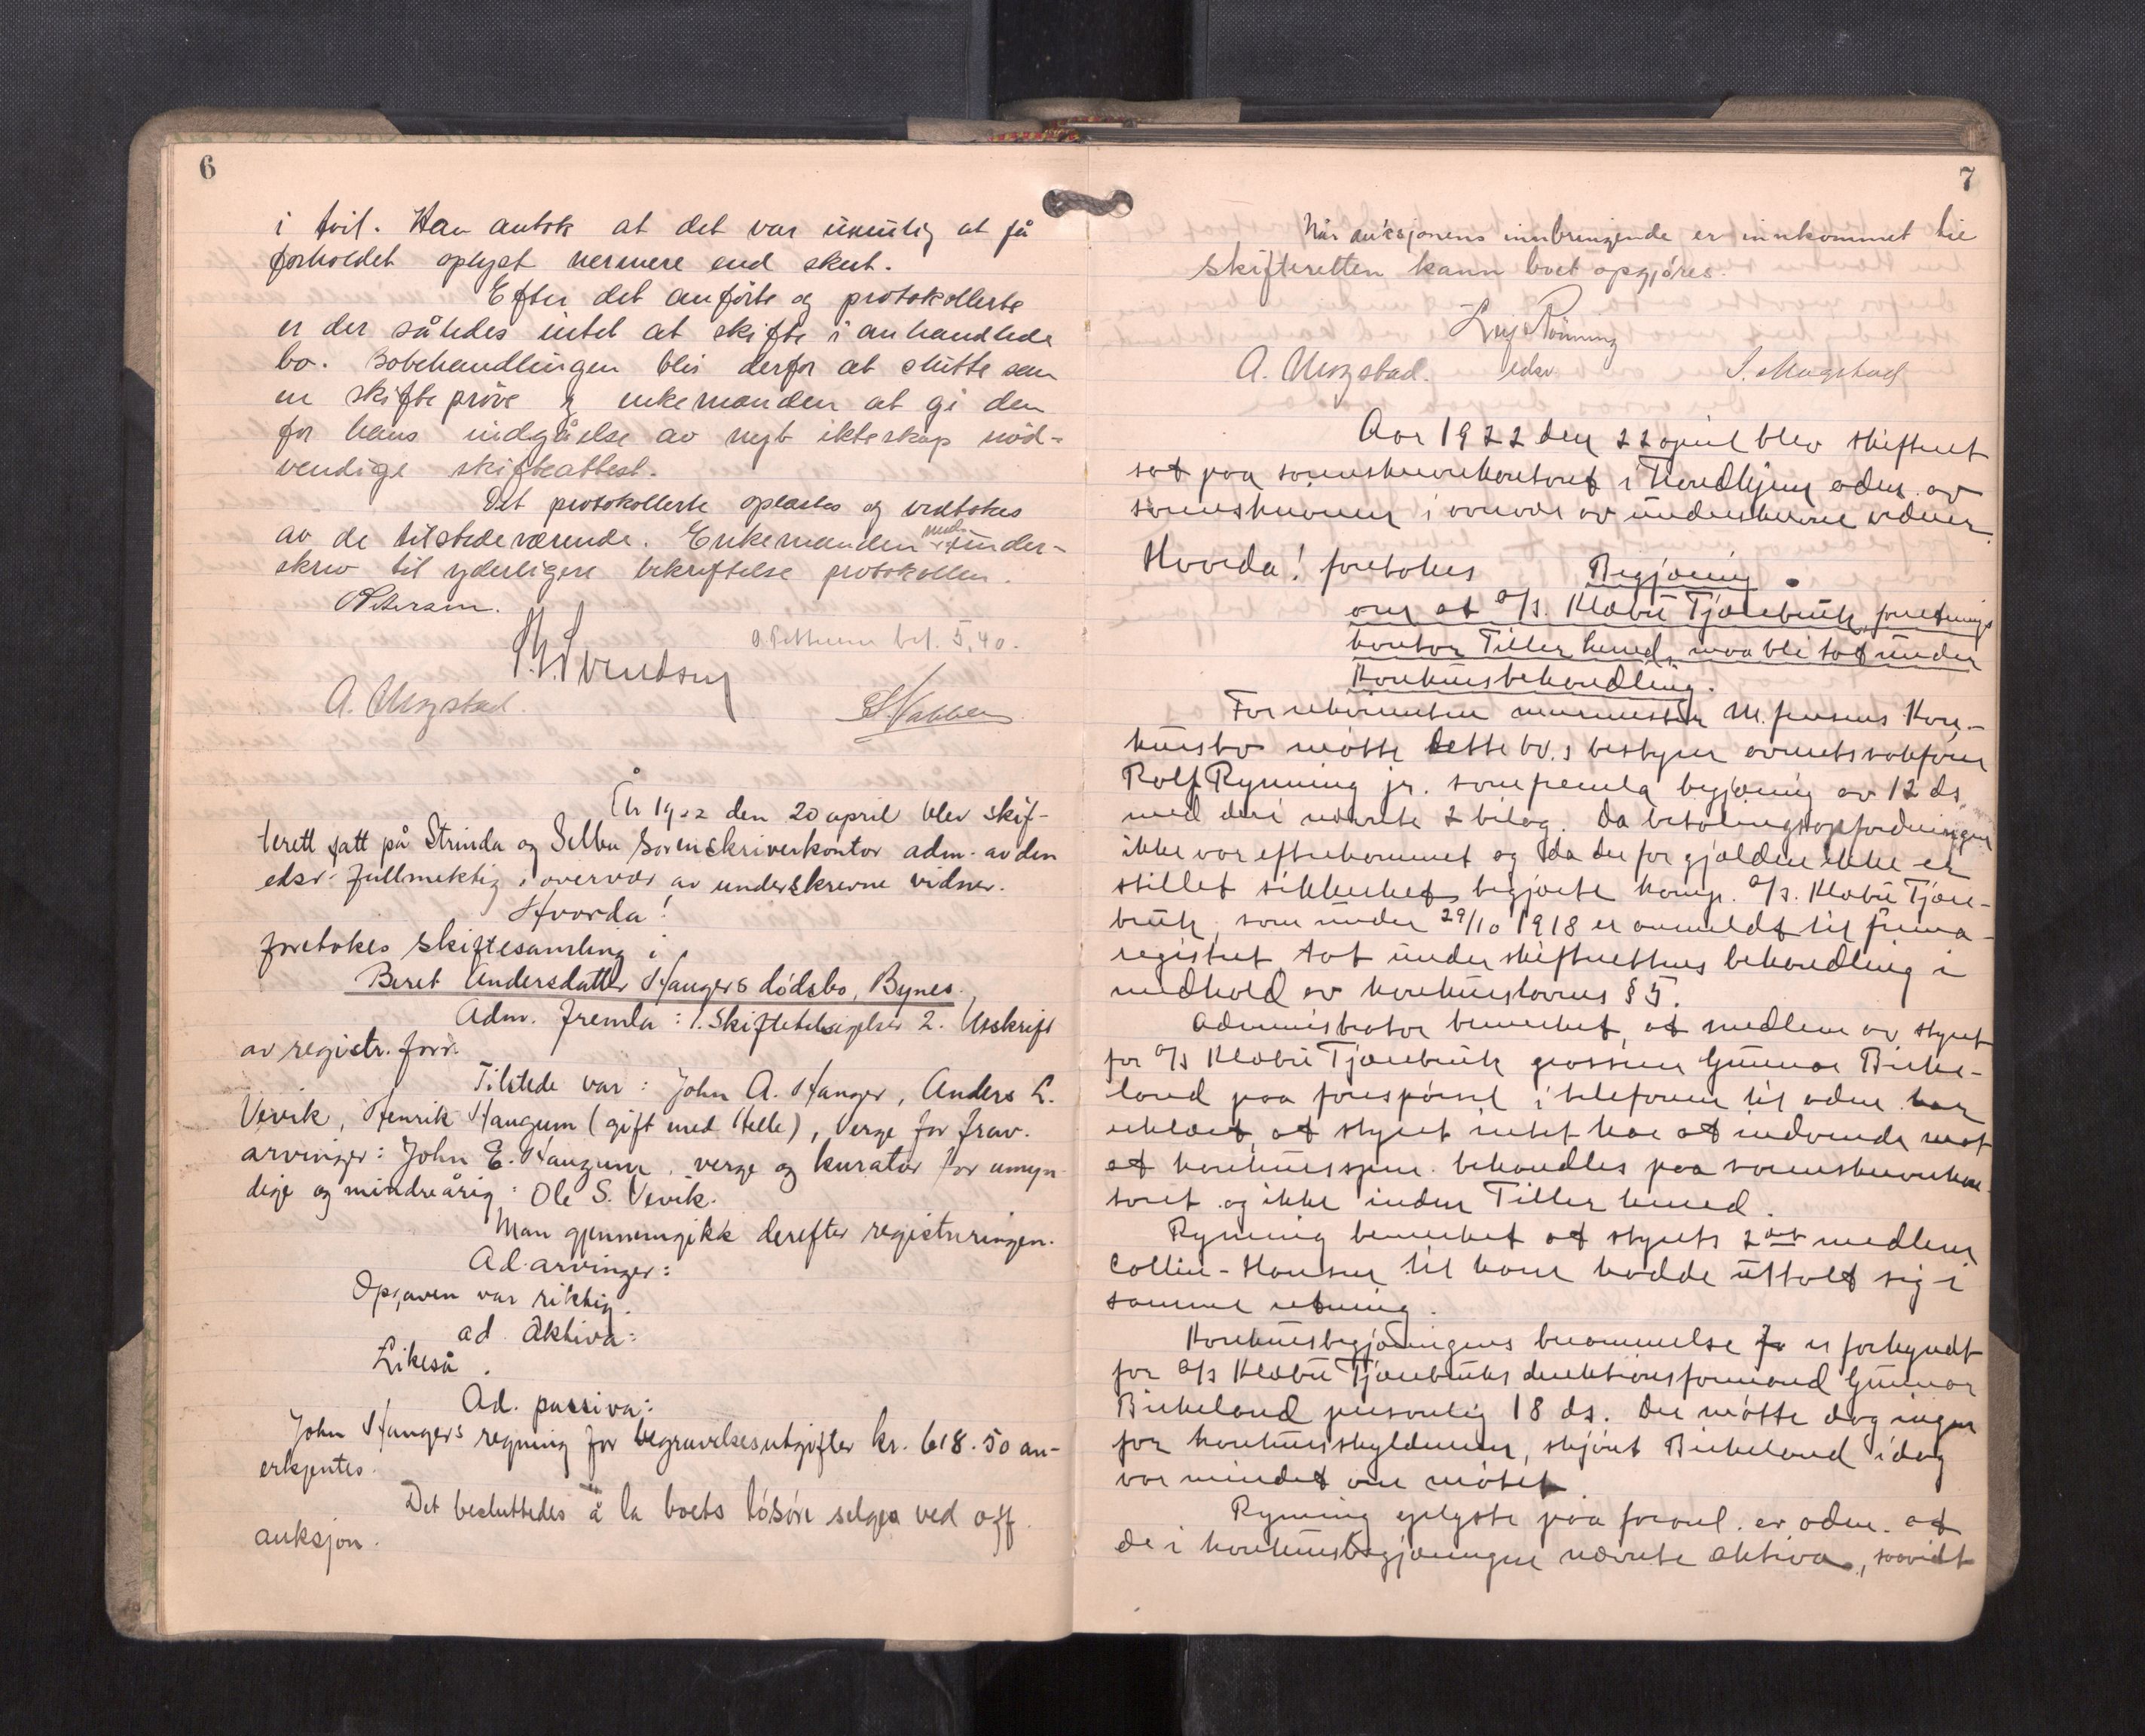 6
i tvil. Han antok at det var umulig at få
forholdet oplyst nermere end skeet.
Efter det anførte og protokollerte
er der således intet at skifte i anhandlede
bo. Bobehandlingen blir derfor at slutte som
en skifteprøve og enkemanden at gi den
for hans indgåelse av nyt ekteskap nød-
vendige skifteattest.
Det protokollerte oplæstes og vedtokes
av de tilstedeværende. Enkemanden med under-
skrev til yderligere bekreftelse protokollen.
O Petersen.
O. Petersen bet. 5,40.
Svendsen
A. Mogstad.
År 1922 den 20 april blev skif-
terett satt på Strinda og Selbu Sorenskriverkontor adm. av den
edsv. fullmektig i overvær av underskrevne vidner.
Hvorda!
foretokes skiftesamling i
Beret Andersdatter Haugers dødsbo, Bynes.
Adm. fremla: 1. Skiftetilsigelse 2. Utskrift
av registr. forr.
Tilstede var: John A. Hanger, Anders L.
Vevik, Henrik Haugum (gift med Helle), Verge for frav.
arvinger: John E. Haugum, verge og kurator for umyn-
dige og mindreårig: Ole S. Vevik.
Man gjennemgikk derefter registreringen.
Ad. arvinger:
Opgaven var riktig.
ad. Aktiva:
Likeså.
Ad. passiva:
John Haugers regning for begravelsesutgifter kr. 618.50 an-
erkjentes.
Det besluttedes å la boets løsøre selges ved off.
auksjon.
7
Når auksjonens innbringende er innkommet til
skifteretten kann boet opgjøres.
Rønning
edsv.
A. Mogstad.
S. Mogstad
Aar 1922 den 22 april blev skifteret
sat paa sorenskriverkontoret i Trondhjem adm. av
sorenskriveren i overvær av underskrevne vidner.
Hvorda! foretokes Begjæring
om at A/S. Klæbu Tjærebruk, forretnings
kontor Tiller herred, maa bli tat under
konkursbehandling.
For rekvirenten murmester M. Jensens kon-
kursbo møtte dette bo.s bestyrer overretssakfører
Rolf Rynning jr. som fremla begjæring av 12 ds.
med deri nævnte 2 bilag. Da betalingsopfordringen
ikke var efterkommet og da der for gjælden ikke er
stillet sikkerhet begjærte komp. A/S. Klæbu Tjære-
bruk, som under 29/10 1918 er anmeldt til firma-
registret tat under skifterettens behandling i
medhold av konkurslovens § 5.
Administrator bemerket, at medlem av styret
for A/S Klæbu Tjærebruk grosserer Gunnar Birke-
land paa forespørsel i telefonen til adm. har
erklært, at styret intet har at indvende mot
at konkursspm. behandles paa sorenskriverkon-
toret og ikke inden Tiller herred.
Rynning bemerket at styrets 2det medlem
Collin-Hansen til ham hadde uttalt sig i
samme retning.
Konkursbegjæringens berammelse er forkyndt
for A/S Klæbu Tjærebruks direktionsformand Gunnar
Birkeland personlig 18 ds. Der møtte dog ingen
for konkursskyldneren, skjønt Birkeland idag
var mindet om møtet.
Rynning oplyste paa foranl. av adm. at
de i konkursbegjæringen nævnte aktiva, saavidt